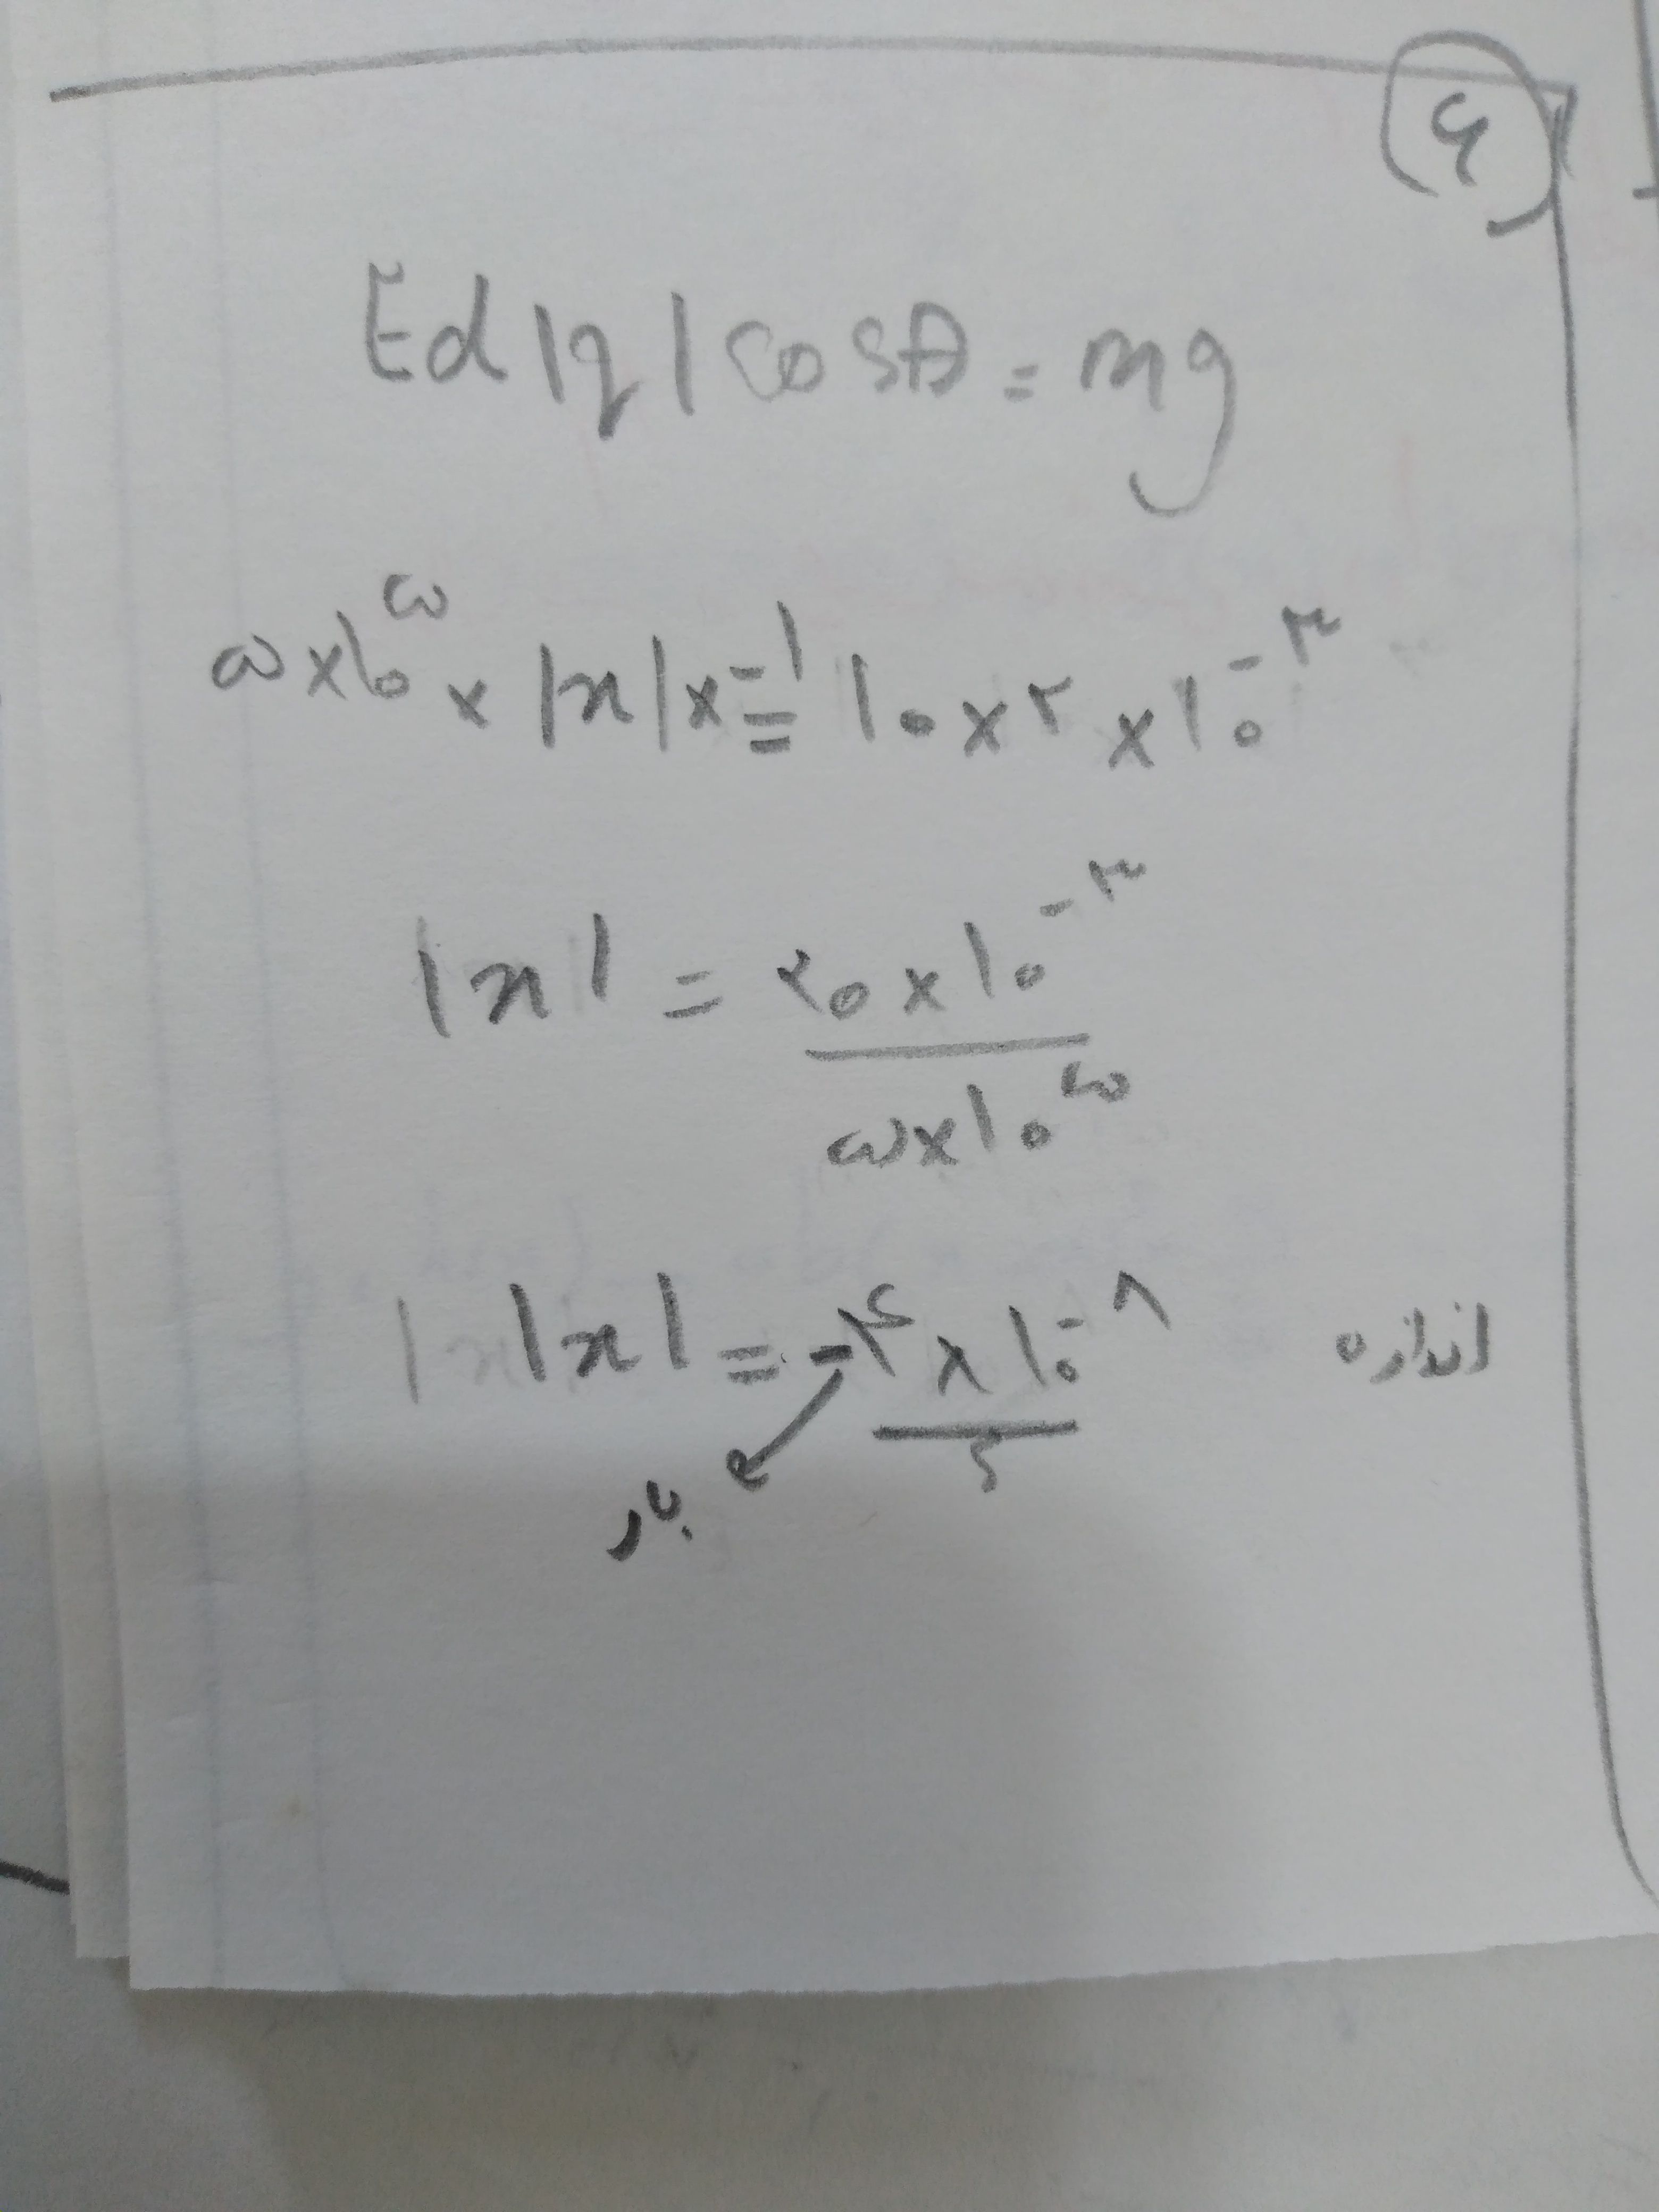 ۶
Ed|q| cosθ = mg
۵×۱۰^۵ × |x| × -۱ = ۱۰×۲×۱۰^-۳
|x| = ۲۰×۱۰^-۳ / ۵×۱۰^۵
|x| = -۴×۱۰^-۸ اندازه
بار